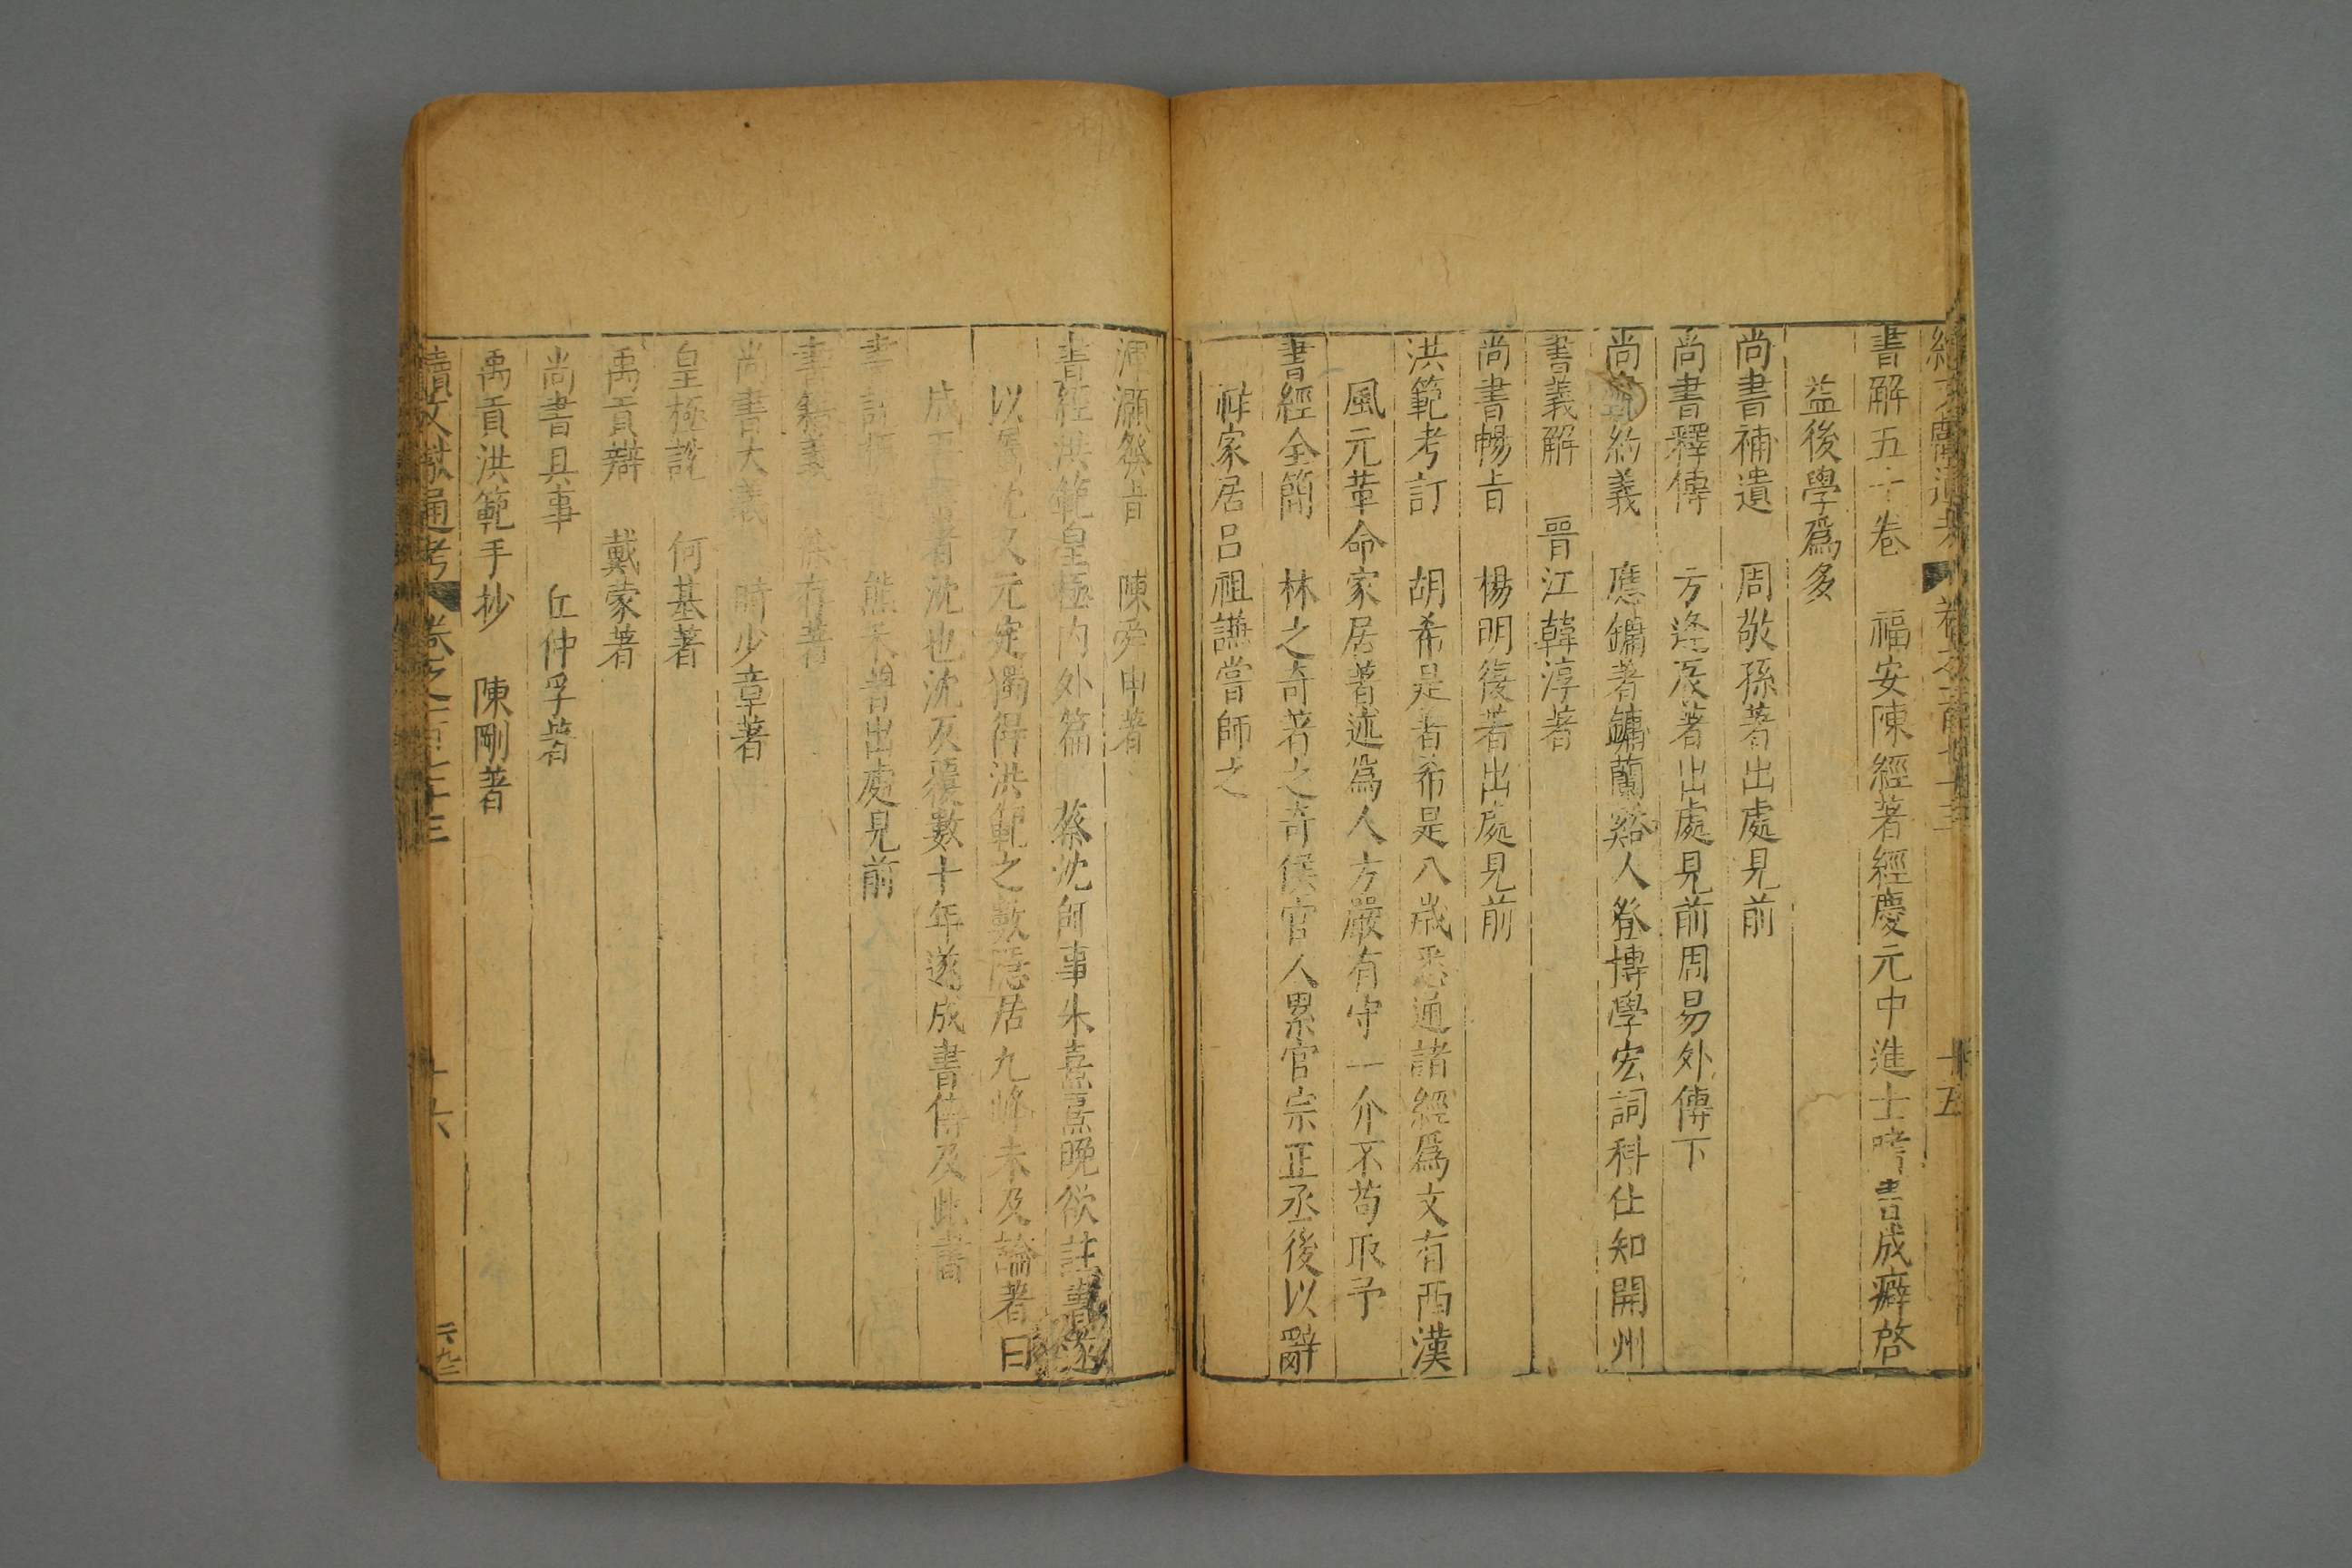 書解五十卷　福安陳經著經慶元中進士嗜書成癖啓
益後學爲多
尚書補遺　周敬孫著出處見前
尚書釋傳　方逢辰著出處見前周易外傳下
尚書約義　應鏞著鏞蘭谿人登博學宏詞科仕知開州
書義解　晉江韓淳著
尚書暢旨　楊明復著出處見前
洪範考訂　胡希是著希是八歲悉通諸經爲文有西漢
風元革命家居著述爲人方嚴有守一介不苟取予
書經全簡　林之奇著之奇侯官人累官宗正丞後以辭
祠家居呂祖謙嘗師之
續文獻通考　卷之一百七十三　十五
渾灝發旨　陳舜申著
書經洪範皇極內外篇　蔡沈師事朱熹熹晚欲註書遂
以屬沈又元定獨得洪範之數隱居九峰未及論著曰
成吾書者沈也沈反覆數十年遂成書傳及此書
書說　熊禾著出處見前
書　義　洪　著
尚書大義　時少章著
皇極說　何基著
禹貢辯　戴蒙著
尚書具事　丘仲孚著
禹貢洪範手抄　陳剛著
續文獻通考　卷之一百七十三　十六